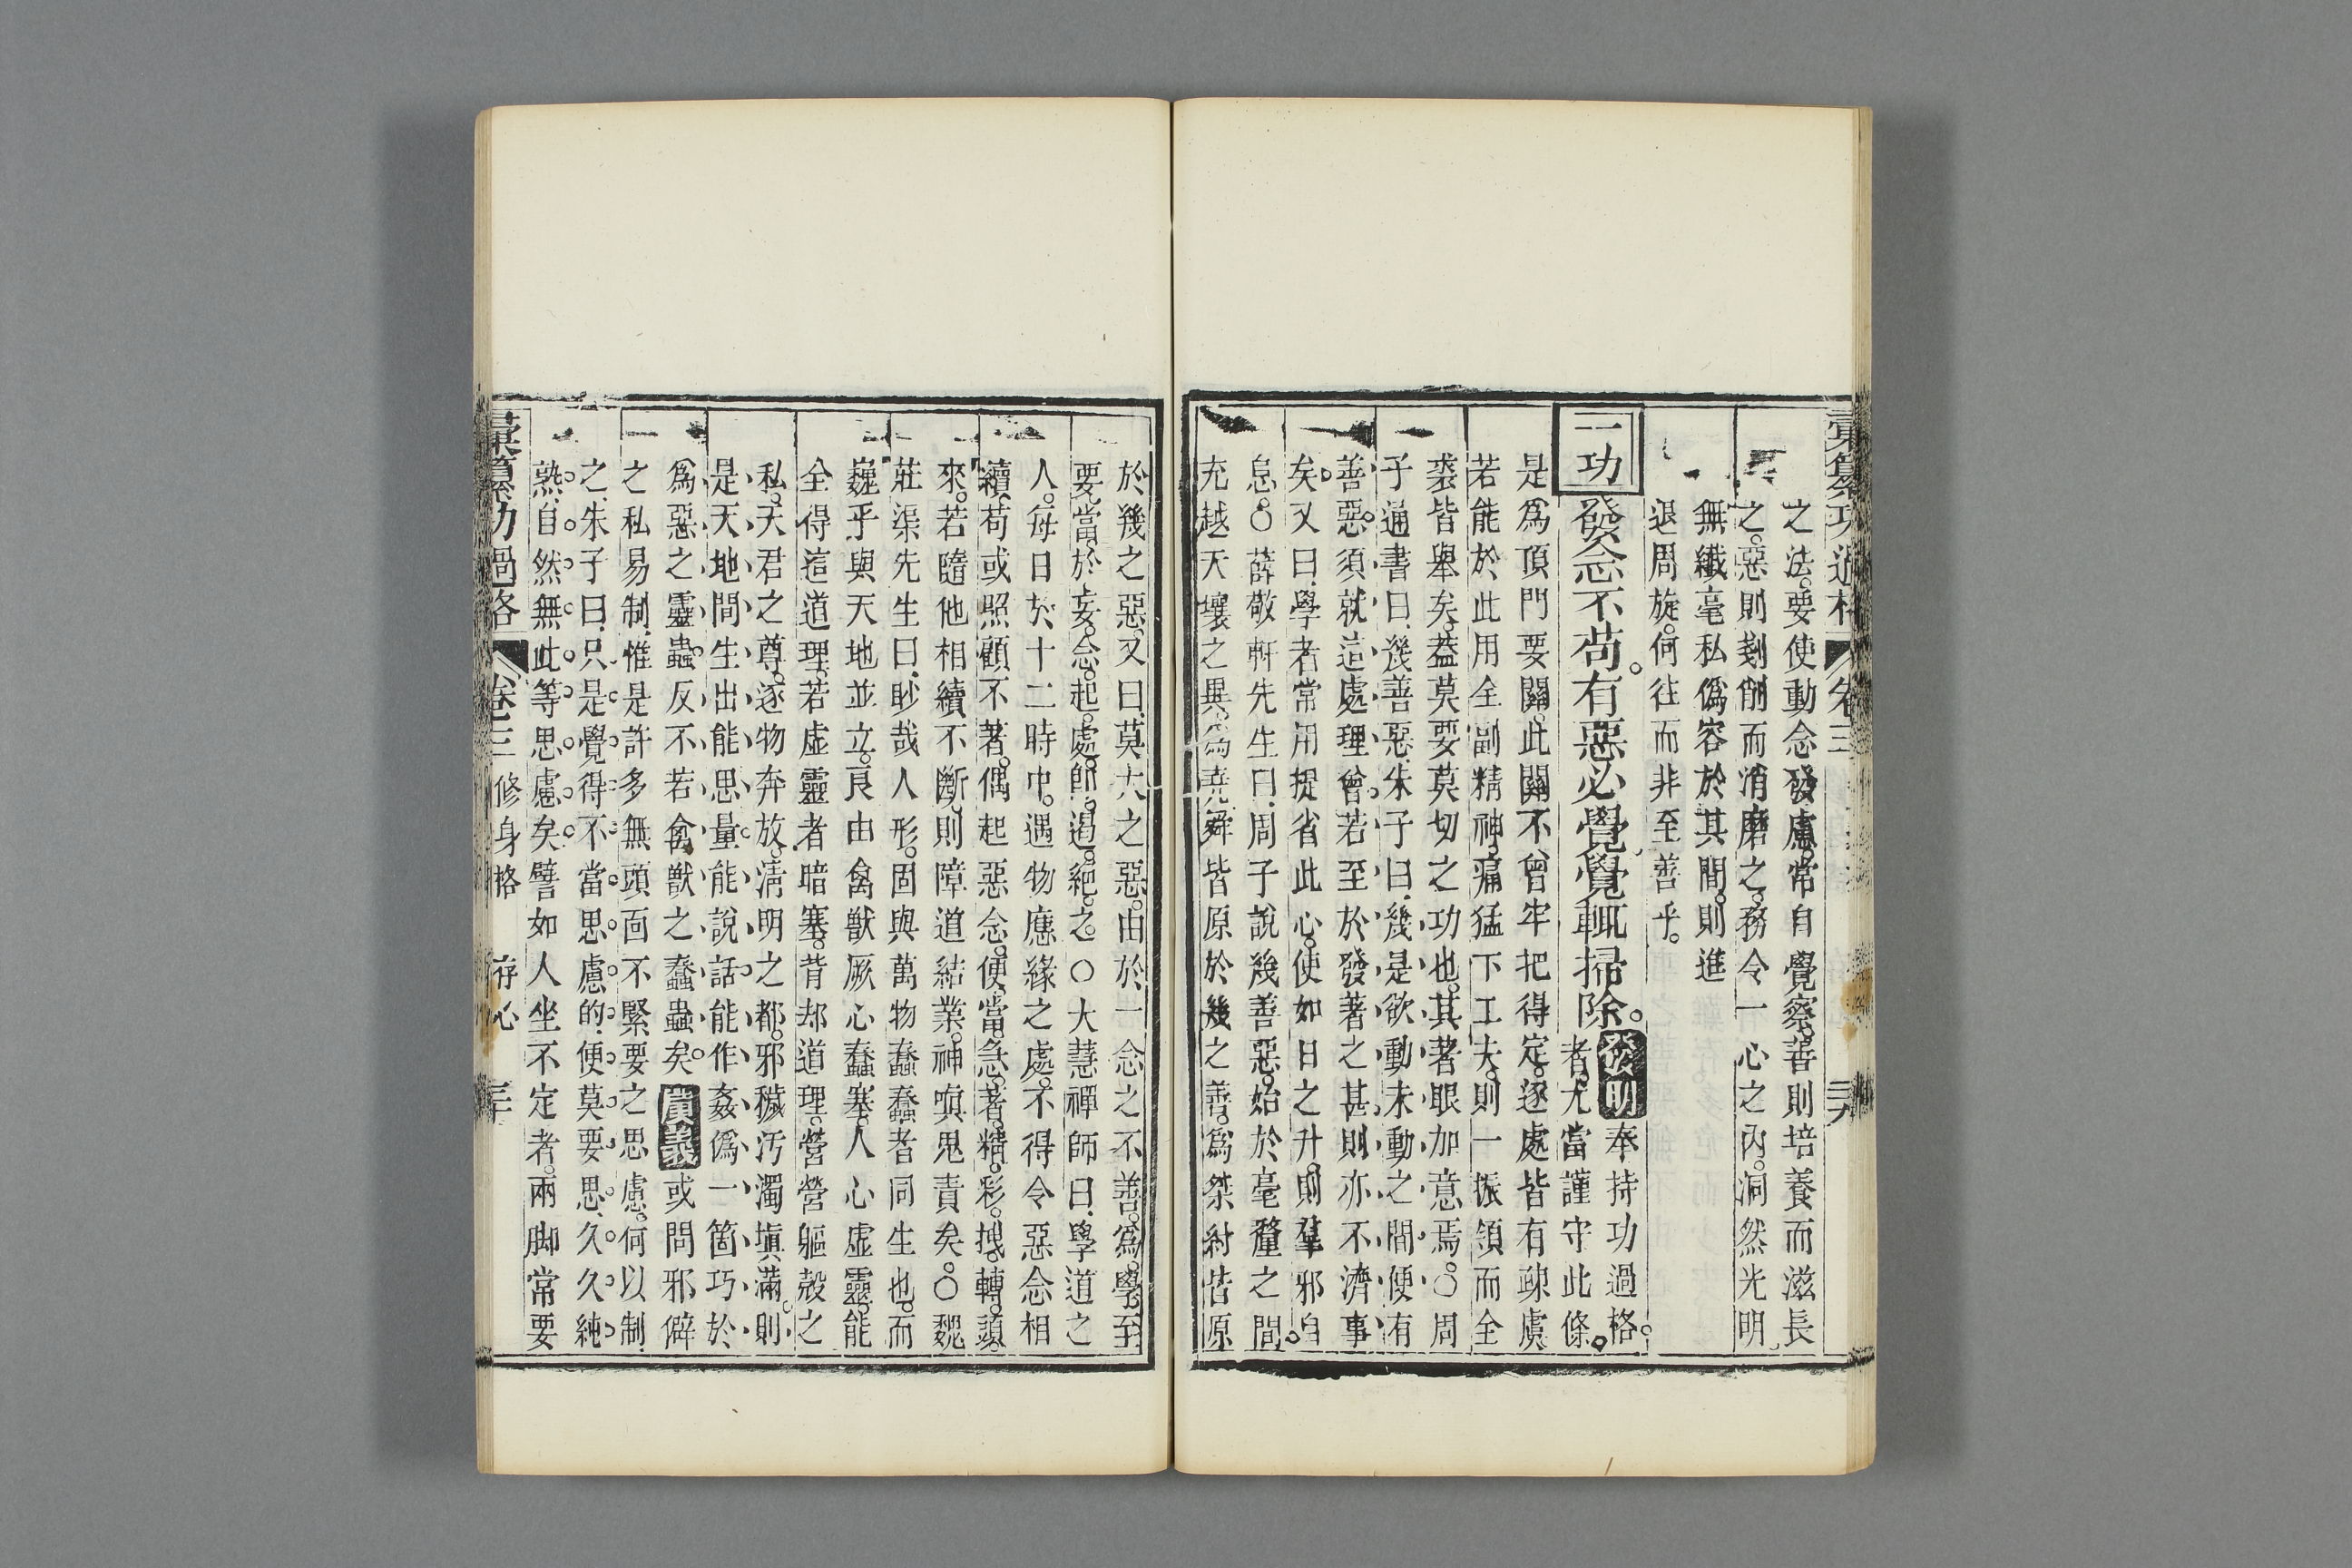 彙纂功過格 卷三 二十九
之法。要使動念發慮。常自覺察。善則培養而滋長
之。惡則剗削而消磨之。務令一心之內。洞然光明
無纖毫私僞容於其間。則進
退周旋。何往而非至善乎。
一功 發念不苟。有惡必覺。覺輒掃除。發明 奉持功過格。
者。尤當謹守此條。
是爲頂門要關。此關不曾牢把得定。逐處皆有疎虞
若能於此用全副精神。痛猛下工夫。則一振領而全
裘皆舉矣。蓋莫要莫切之功也。其著眼加意焉。○周
子通書曰。幾善惡。朱子曰。幾是欲動未動之間。便有
善惡。須就這處理會。若至於發著之甚。則亦不濟事
矣。又曰。學者常用提省此心。使如日之升。則羣邪自
息。○薛敬軒先生曰。周子說幾善惡。始於毫釐之間。
充越天壤之異。爲堯舜皆原於幾之善。爲桀紂皆原
於幾之惡。又曰。莫大之惡。由於一念之不善。爲學至
要。當於妄念起處。卽遏絕之。○大慧禪師曰。學道之
人。每日於十二時中。遇物應緣之處。不得令惡念相
續。苟或照顧不著。偶起惡念。便當急著精彩。拽轉頭
來。若隨他相續不斷。則障道結業。神嗔鬼責矣。○魏
莊渠先生曰。眇哉人形。固與萬物蠢蠢者同生也。而
巍乎與天地並立。良由禽獸厥心蠢塞。人心虛靈。能
全得這道理。若虛靈者暗塞。背却道理。營營軀殼之
私。天君之尊。逐物奔放。清明之都。邪穢汚濁塡滿。則
是天地間生出能思量能說話能作姦僞一箇巧於
爲惡之靈蟲。反不若禽獸之蠢蟲矣。廣義 或問邪僻
之私易制。惟是許多無頭面不緊要之思慮。何以制
之。朱子曰。只是覺得不當思慮的。便莫要思。久久純
熟。自然無此等思慮矣。譬如人坐不定者。兩脚常要
彙纂功過格 卷三 修身格 存心 三十